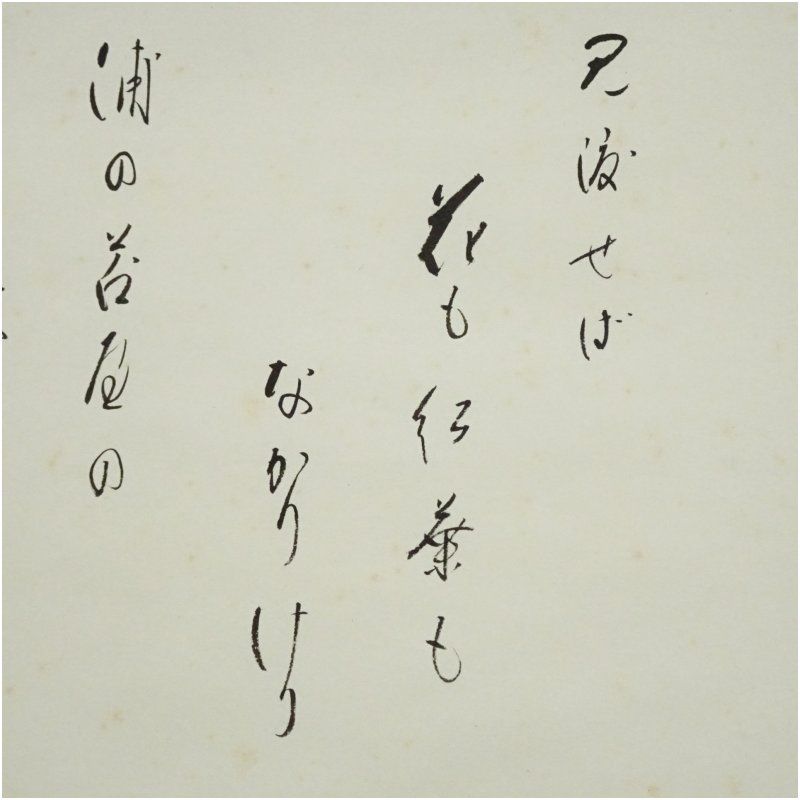 見渡せば
花も紅葉も
なかりけり
浦の苫屋の